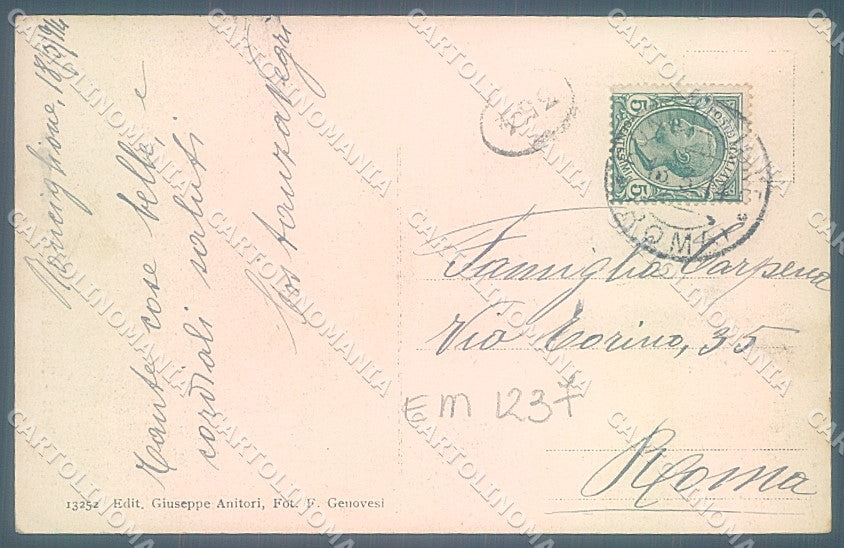 Ronciglione, 18/3/914
Tante cose belle, e
cordiali saluti
5 5
POSTE ITALIANE
ROMA
Famiglia Carpena
Via Torino, 35
Roma
EM 1237
13252 Edit. Giuseppe Anitori, Fot. F. Genovesi
CARTOLINOMANIA